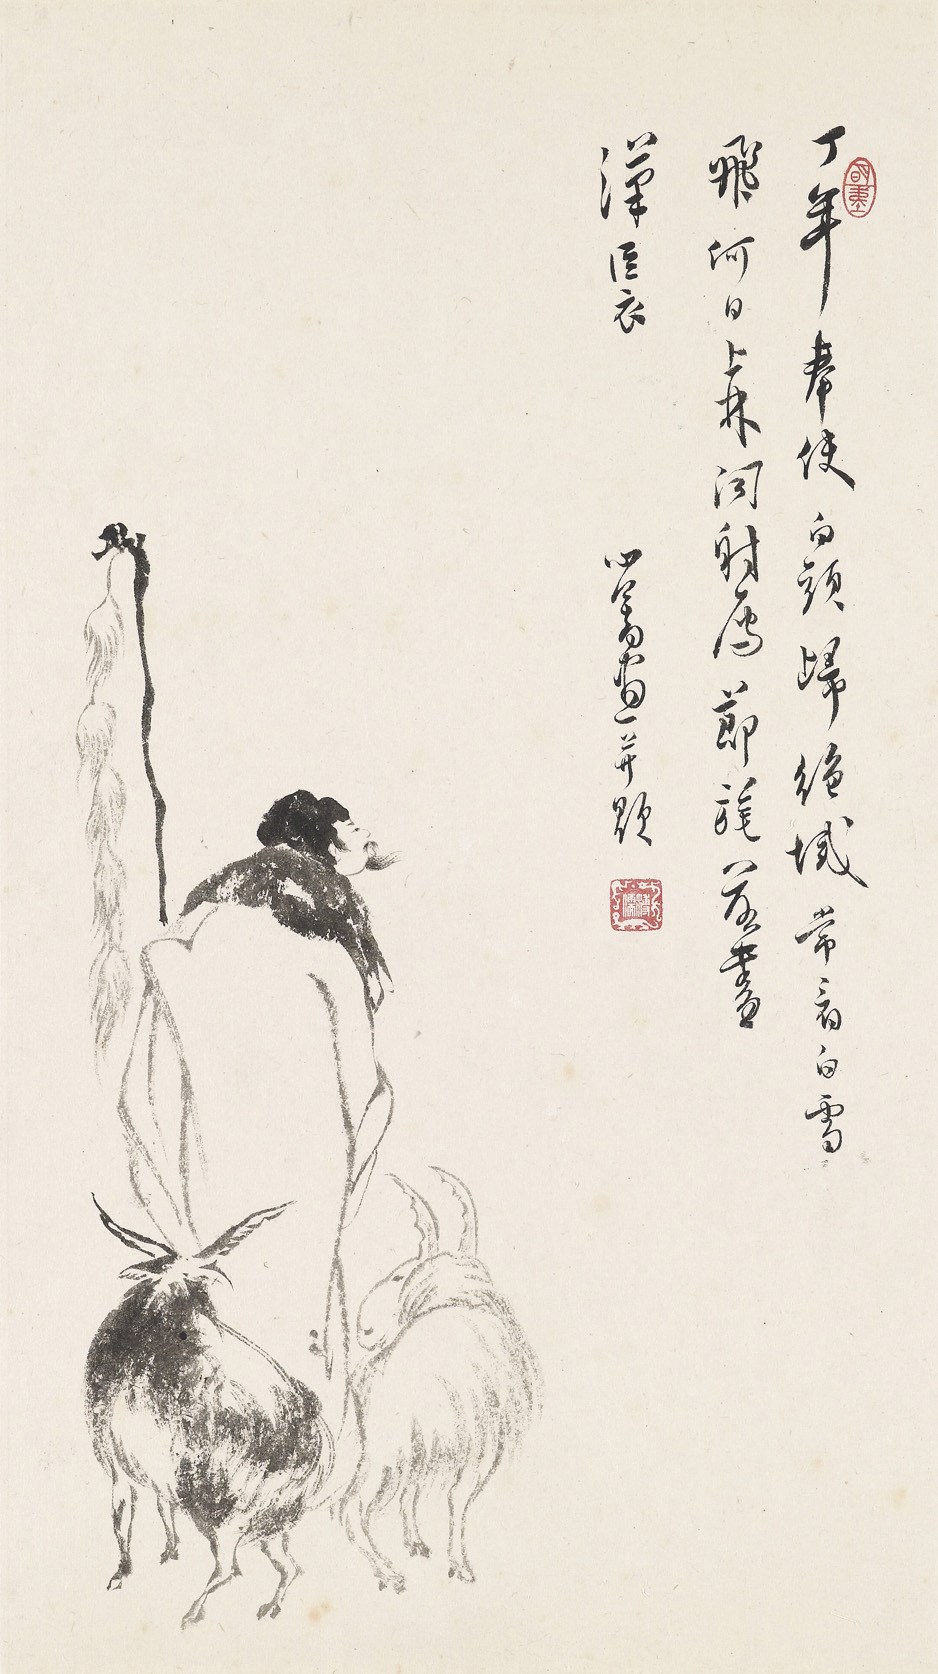 丁年奉使白頭歸絕域常看白雪
飛何日上林問射雁節旄落盡
漢臣衣 心畬畫并題
溥儒